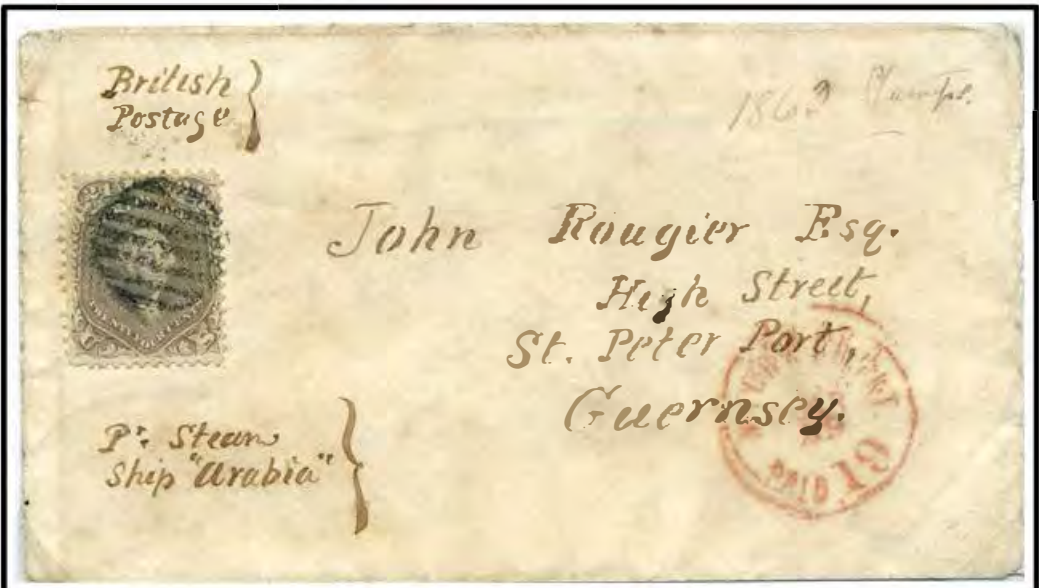 British
Postage
1863
John Rougier Esq.
High Street,
St. Peter Port,
Guernsey.
Pr. Steam
Ship "Arabia"
PAID